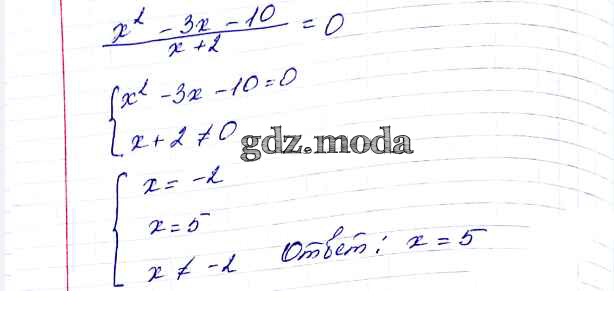 x² - 3x - 10 / x + 2 = 0
{ x² - 3x - 10 = 0
x + 2 ≠ 0
gdz.moda
{ x = -2
x = 5
x ≠ -2 Ответ: x = 5